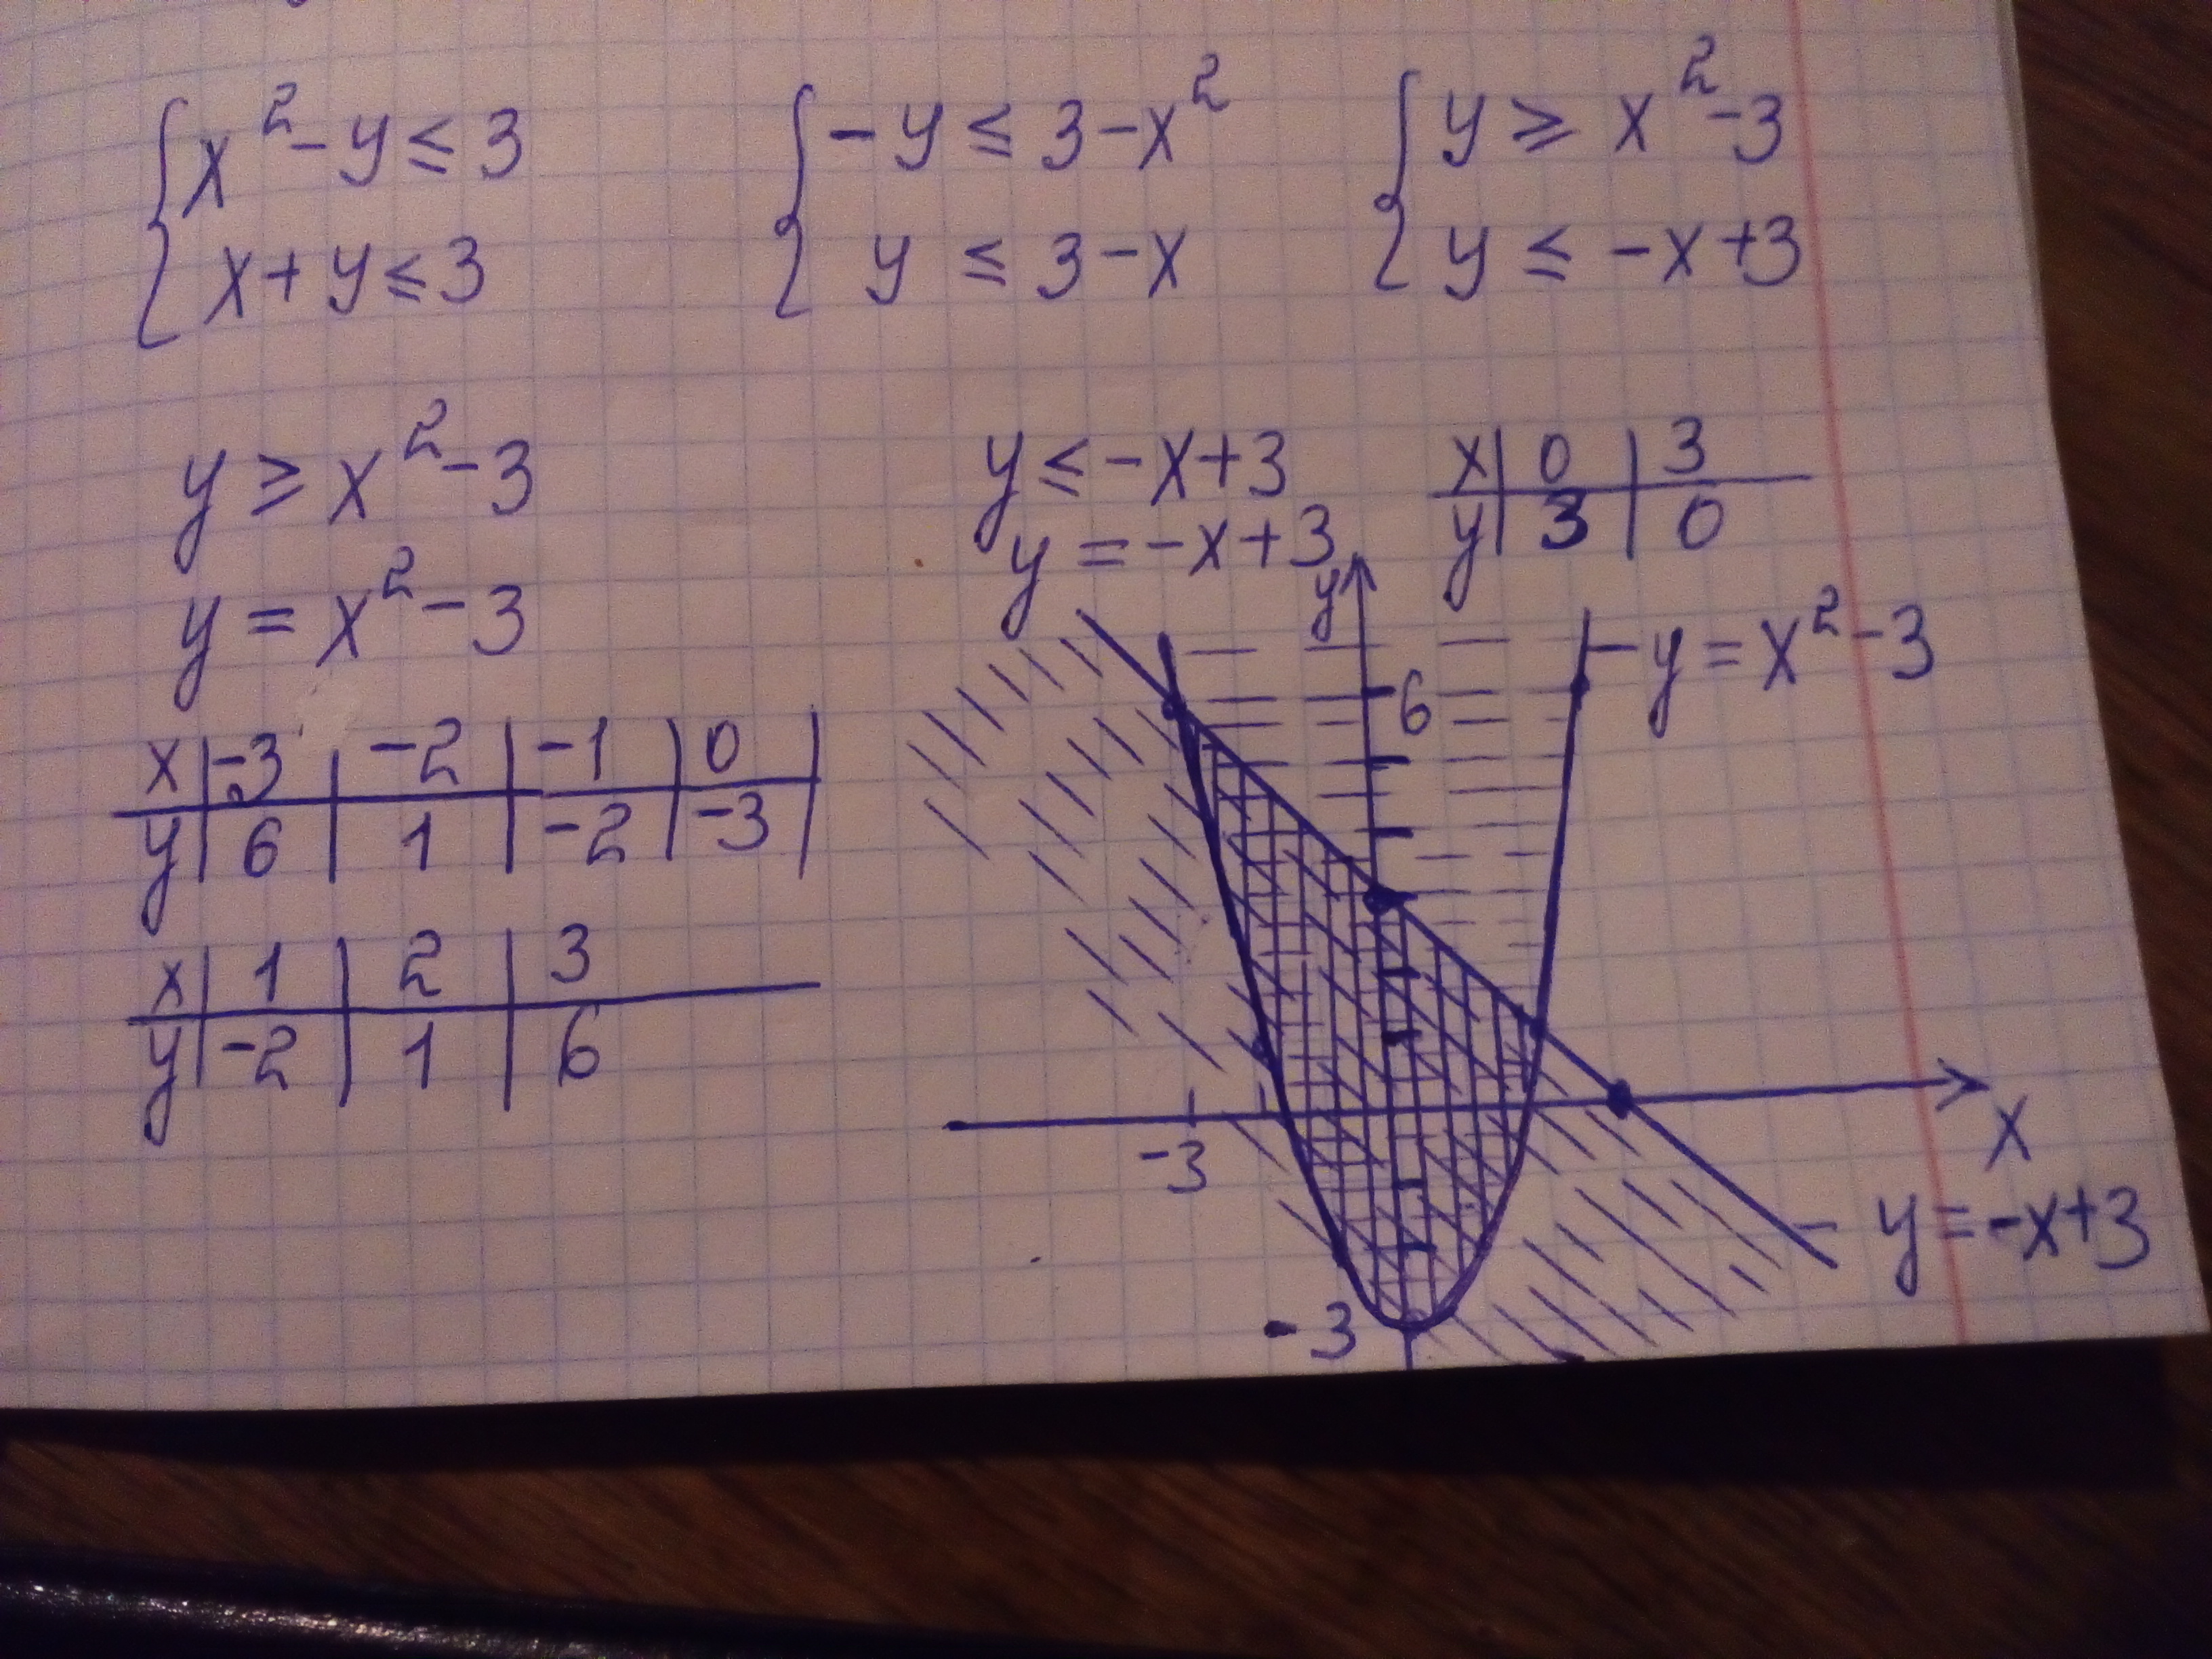 { x² - y ≤ 3    { -y ≤ 3 - x²    { y ≥ x² - 3
{ x + y ≤ 3    { y ≤ 3 - x    { y ≤ -x + 3
y ≥ x² - 3
y = x² - 3
x | -3 | -2 | -1 | 0
y | 6 | 1 | -2 | -3
x | 1 | 2 | 3
y | -2 | 1 | 6
y ≤ -x + 3
y = -x + 3
x | 0 | 3
y | 3 | 0
y
y = x² - 3
6
-3
x
y = -x + 3
-3